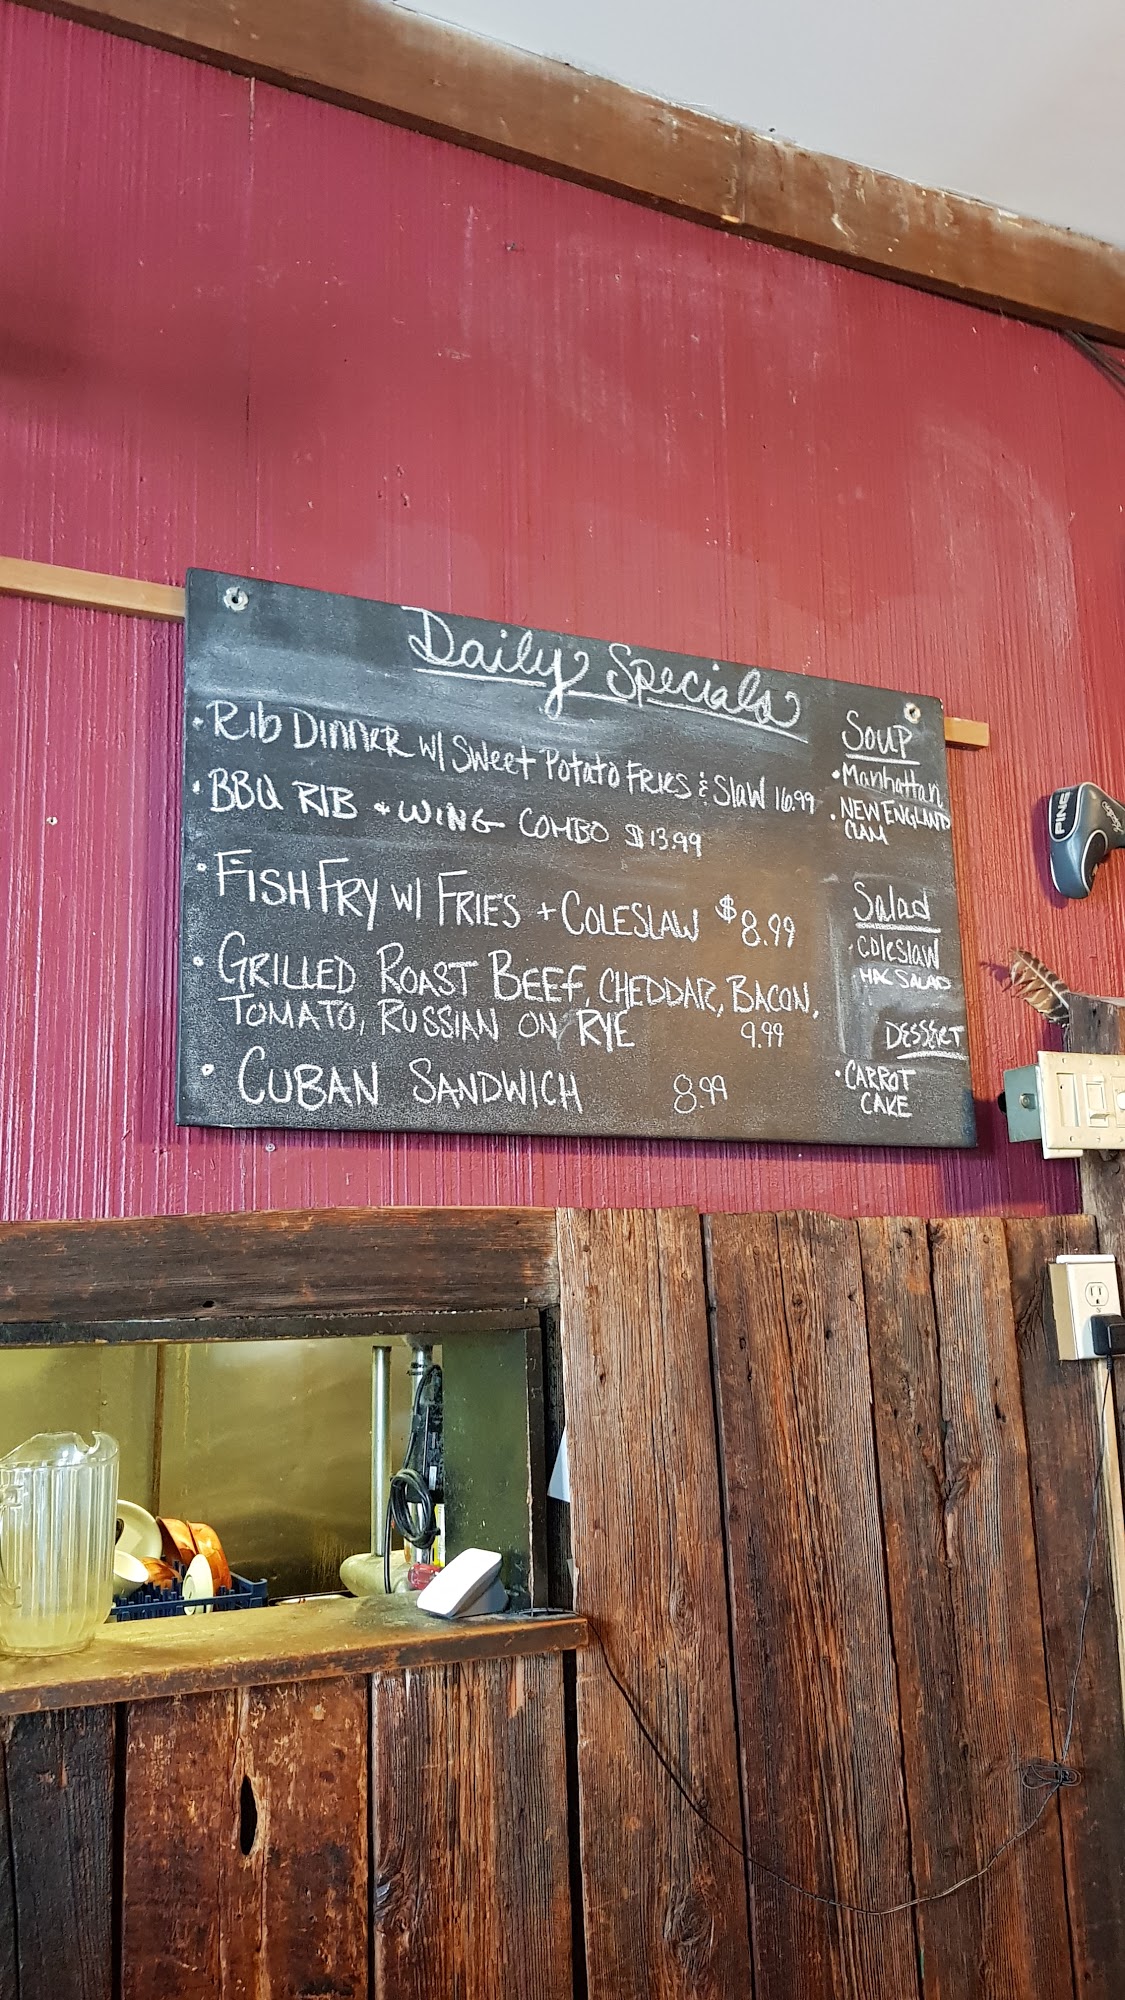 Daily Specials
• Rib Dinner w/ Sweet Potato Fries & Slaw 16.99
• BBQ RIB + WING COMBO $13.99
• FISH FRY w/ FRIES + COLESLAW $8.99
• GRILLED ROAST BEEF, CHEDDAR, BACON,
TOMATO, RUSSIAN ON RYE 9.99
• CUBAN SANDWICH 8.99
Soup
• Manhattan
• NEW ENGLAND
CLAM
Salad
• Coleslaw
• MAC SALAD
DESSERT
• CARROT
CAKE
PING